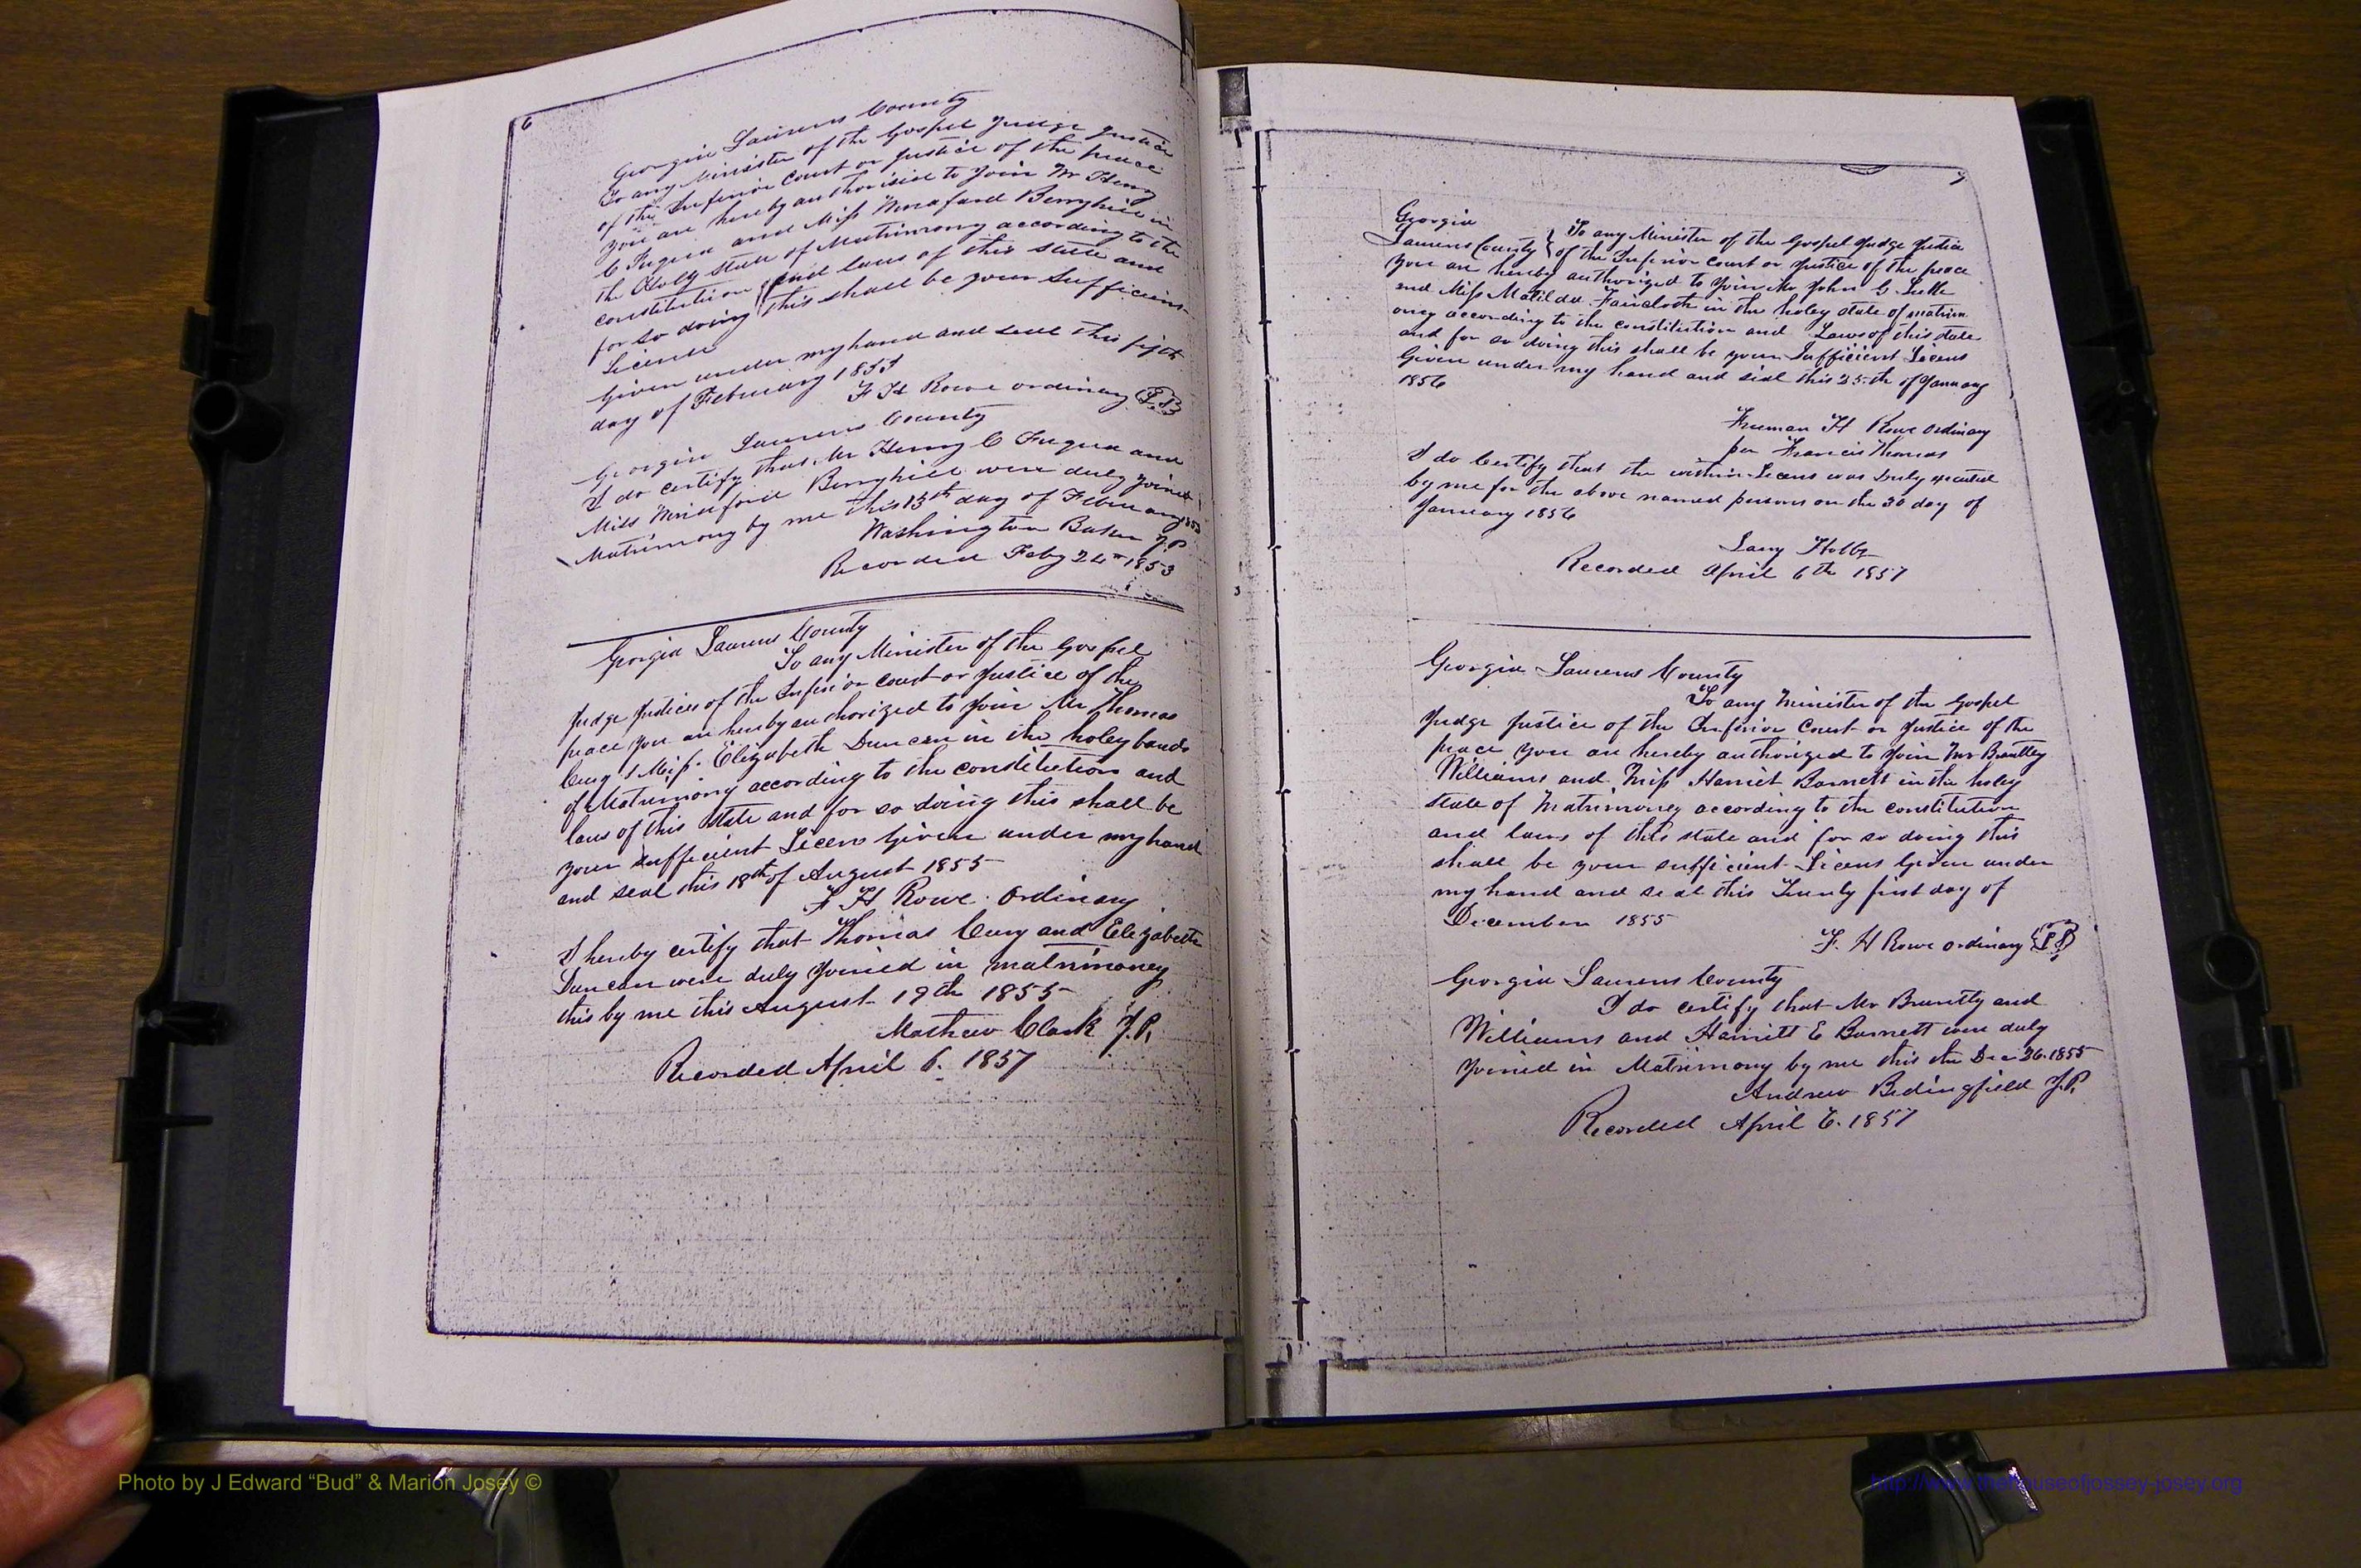 6
Georgia Laurens County
To any Minister of the Gospel Judge Justice
of the Inferior Court or Justice of the peace
you are hereby authorised to Join Mr Henry
C Fuqua and Miss Berryhill in
the Holy State of Matrimony according to the
constitution and laws of this state and
for so doing this shall be your Sufficient
License
Given under my hand and seal this fifth
day of February 1853
F H Rowe ordinary
Georgia Laurens County
I do certify that Mr Henry C Fuqua and
Miss Berryhill were duly joined
Matrimony by me this 13th day of February 1853
Washington Baker J.P.
Recorded Feby 24th 1853
Georgia Laurens County
To any Minister of the Gospel
Judge Justices of the Inferior court or Justice of the
peace you are hereby authorized to Join Mr Thomas
& Miss Elizabeth Duncan in the holey bands
of Matrimony according to the constitution and
laws of this state and for so doing this shall be
your sufficient Licens Given under my hand
and seal this 18th of August 1855
F H Rowe Ordinary
I hereby certify that Thomas and Elizabeth
Duncan were duly Joined in matrimoney
this by me this August 19th 1855
Mathew Clark J.P.
Recorded April 6. 1857
7
Georgia
Laurens County } To any Minister of the Gospel Judge Justice
of the Inferior Court or Justice of the peace
you are hereby authorized to Join Mr John G
and Miss Matilda Faircloth in the holey state of matrim
ony according to the constitution and Laws of this state
and for so doing this shall be your Sufficient Licens
Given under my hand and seal this 25th of January
1856
Freeman H Rowe Ordinary
per Francis Thomas
I do Certify that the within Licens was Duly executed
by me for the above named persons on the 30 day of
January 1856
Hobbs
Recorded April 6th 1857
3
Georgia Laurens County
To any Minister of the Gospel
Judge Justice of the Inferior Court or Justice of the
peace you are hereby authorized to Join Mr Brantley
Williams and Miss Harriet Barnett in the holey
state of Matrimoney according to the constitution
and laws of this state and for so doing this
shall be your sufficient Licens Given under
my hand and seal this Twenty first day of
December 1855
F. H Rowe ordinary
Georgia Laurens County
I do certify that Mr Brantly and
Williams and Harriett E Barnett were duly
Joined in Matrimony by me this the Dec 26. 1855
Andrew Bedingfield J.P.
Recorded April 6. 1857
Photo by J Edward “Bud” & Marion Josey ©
http://www.thehouseofjossey-josey.org